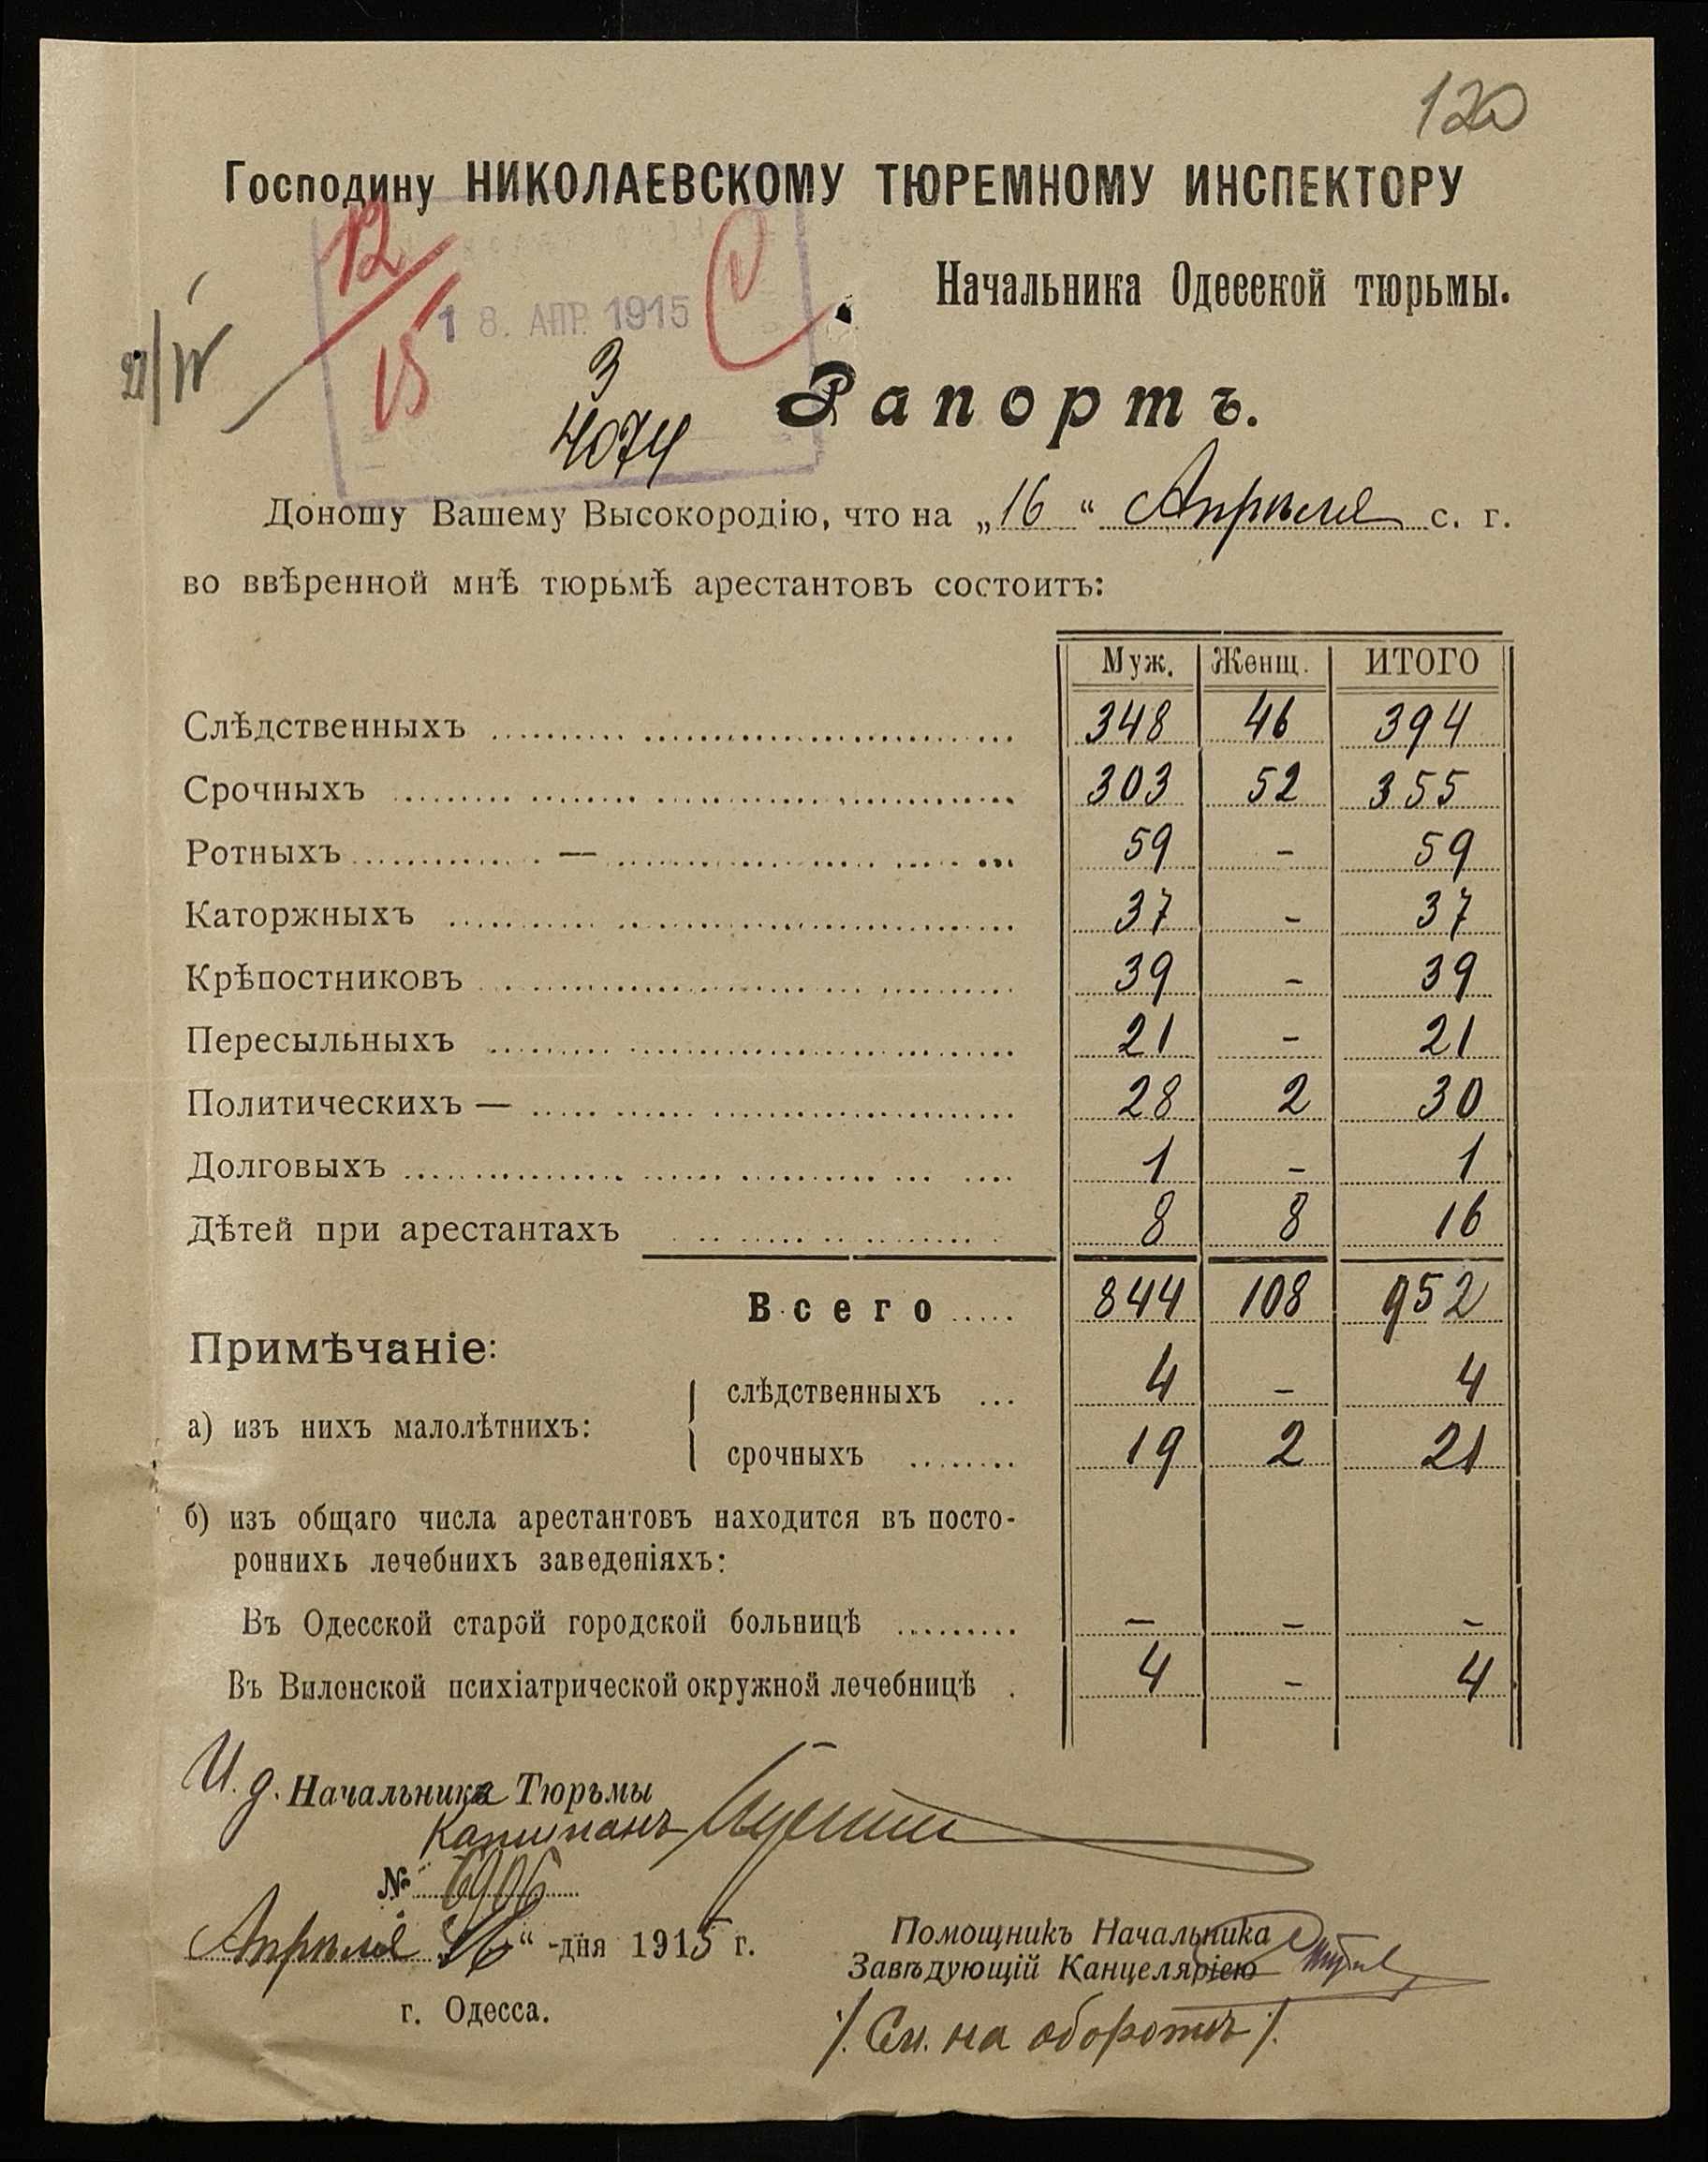 120
Господину НИКОЛАЕВСКОМУ ТЮРЕМНОМУ ИНСПЕКТОРУ
Начальника Одесской тюрьмы.
12/15
18. АПР. 1915
21/IV
3
4074
Рапортъ.
Доношу Вашему Высокородію, что на „16“ Апрѣля с. г.
во ввѣренной мнѣ тюрьмѣ арестантовъ состоитъ:
Муж. Женщ. ИТОГО
Слѣдственныхъ 348 46 394
Срочныхъ 303 52 355
Ротныхъ — 59 - 59
Каторжныхъ 37 - 37
Крѣпостниковъ 39 - 39
Пересыльныхъ 21 - 21
Политическихъ — 28 2 30
Долговыхъ 1 - 1
Дѣтей при арестантахъ 8 8 16
Всего 844 108 952
Примѣчаніе:
слѣдственныхъ 4 - 4
а) изъ нихъ малолѣтнихъ:
срочныхъ 19 2 21
б) изъ общаго числа арестантовъ находится въ посто-
роннихъ лечебнихъ заведеніяхъ:
Въ Одесской старой городской больницѣ - - -
Въ Виленской психіатрической окружной лечебницѣ 4 - 4
И. д. Начальника Тюрьмы
Капитанъ
№ 6906
Апрѣля „16“ -дня 1915 г.
г. Одесса.
Помощникъ Начальника
Завѣдующій Канцеляріею
/. См. на оборотѣ /.